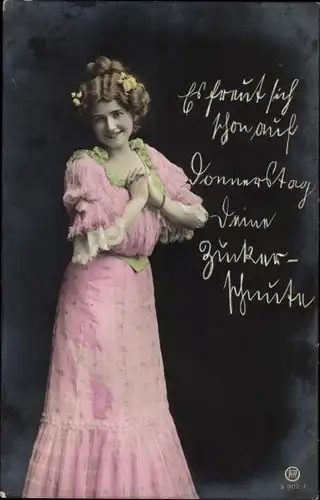 Es freut sich
schon, auf
Donnerstag
Deine
Zucker-
schnute
S 902 1